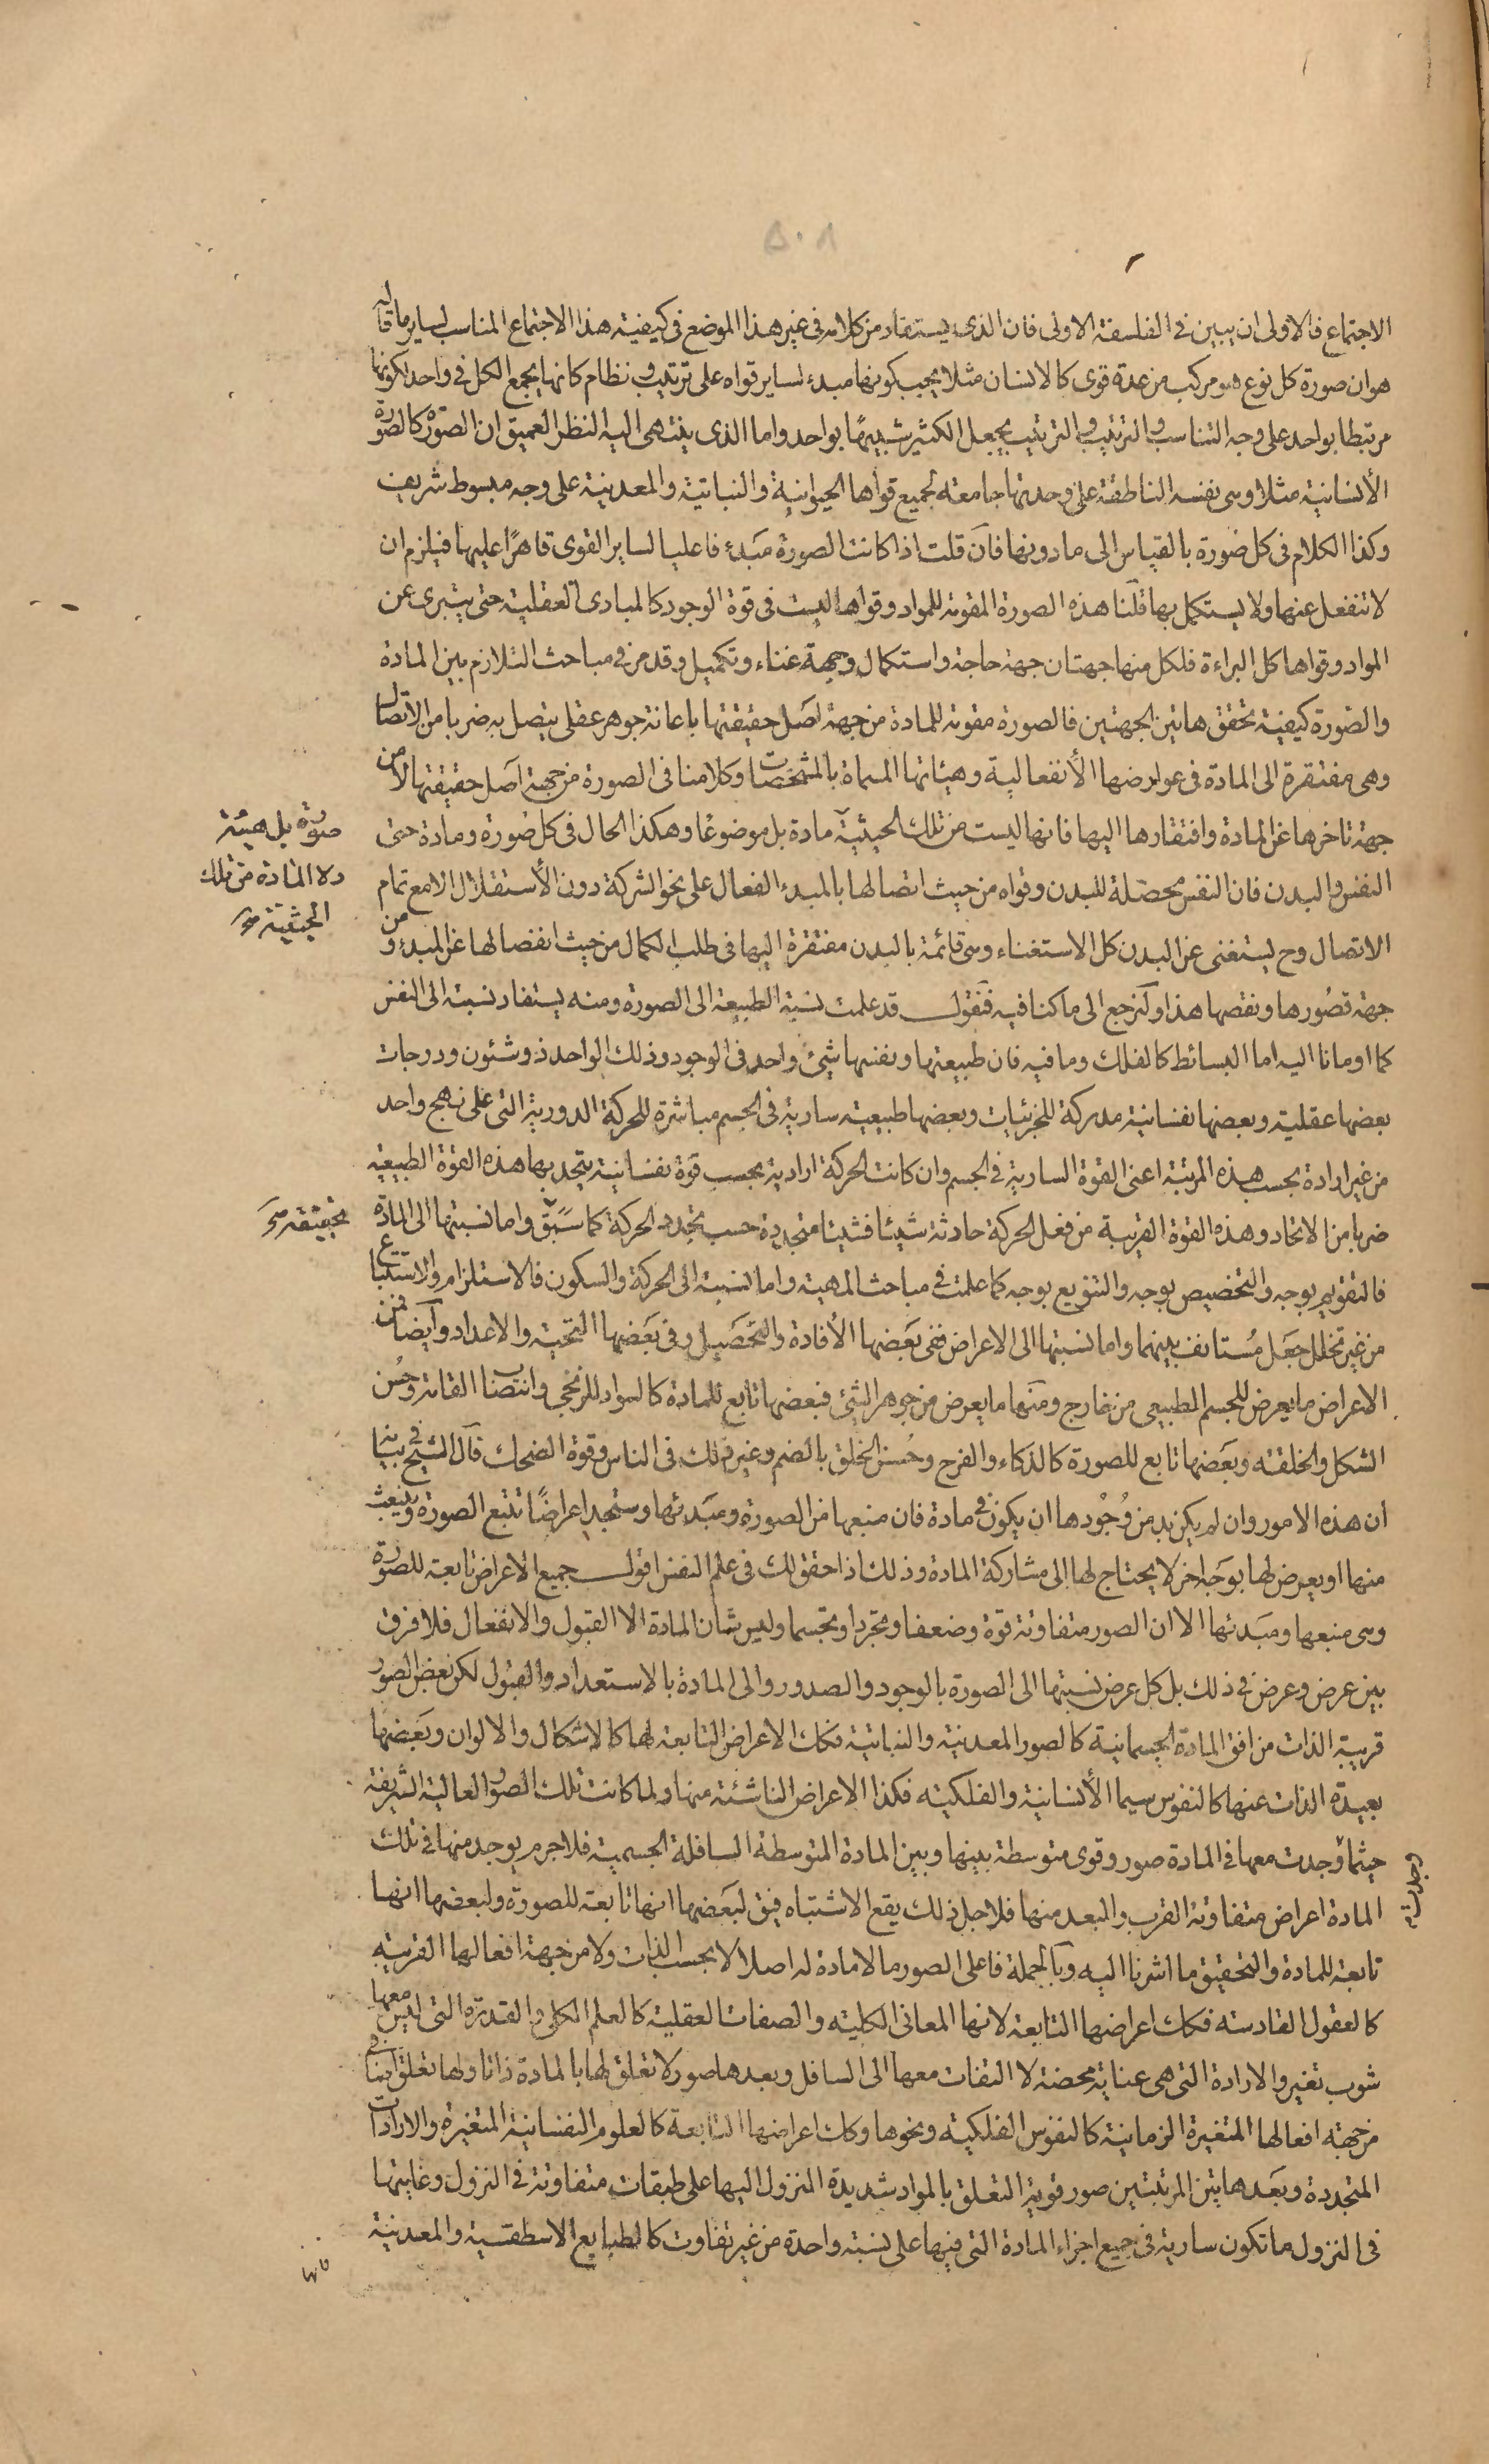 ٥٠٨
الاجتماع فالاولى ان يبين فى الفلسفة الاولى فان الذى يستفاد من كلامه فى غير هذا الموضع فى كيفية هذا الاجتماع المناسب لساير ما قاله
هو ان صورة كل نوع هو مركب من عدة قوى كالانسان مثلا يجب كونها مبدء لساير قواه على ترتيب و نظام كانها يجمع الكل فى واحد لكونها
مرتبطا بواحد على وجه التناسب والترتيب والترتيب يجعل الكثير شبيهًا بواحد واما الذى ينتهى اليه النظر العميق ان الصورة كالصورة
الأنسانية مثلا وهى نفسه الناطقة على وحدتها جامعه لجميع قواها الحيوانية والنباتية والمعدنية على وجه مبسوط شريف
وكذا الكلام فى كل صورة بالقياس الى مادونها فان قلت اذا كانت الصورة مبدء فاعليا لساير القوى قاهرًا عليها فيلزم ان
لا تنفعل عنها ولا يستكمل بها قلنا هذه الصورة المقومة للمواد وقواها ليست فى قوة الوجود كالمبادى العقلية حتى يتبرى عن
المواد وقواها كل البراءة فلكل منها جهتان جهة حاجة واستكمال وجهة غناء وتكميل وقد مر فى مباحث التلازم بين المادة
والصورة كيفية تحقق هاتين الجهتين فالصورة مقومة للمادة من جهة اصل حقيقتها باعانة جوهر عقلى يتصل به ضربا من الاتصال
وهى مفتقرة الى المادة فى عوارضها الأنفعالية وهيئاتها المسماة بالمشخصات وكلامنا فى الصورة من جهة اصل حقيقتها لا من
جهة تاخرها عن المادة وافتقارها اليها فانها ليست من تلك الحيثية مادة بل موضوعا وهكذا الحال فى كل صورة ومادة حتى
صورة بل هيئة
ولا المادة من تلك
الحيثية
النفس والبدن فان النفس محصلة للبدن وقواه من حيث اتصالها بالمبدء الفعال على نحو الشركة دون الأستقلال الا مع تمام
الاتصال وح يستغنى عن البدن كل الاستغناء وهى قائمة بالبدن مفتقرة اليها فى طلب الكمال من حيث انفصالها عن المبدء و من
جهة قصورها ونقصها هذا ولنرجع الى ما كنا فيه فنقول قد علمت نسبة الطبيعة الى الصورة ومنه يستفاد نسبة الى النفس
كما اومانا اليه اما البسائط كالفلك وما فيه فان طبيعتها ونفسها شئ واحد فى الوجود وذلك الواحد ذو شئون ودرجات
بعضها عقلية وبعضها نفسانية مدركة للجزئيات وبعضها طبيعية سارية فى الجسم مباشرة للحركة الدورية التى على نهج واحد
من غير ارادة بحسب هذه المرتبة اعنى القوة السارية فى الجسم وان كانت الحركة ارادية بحسب قوة نفسانية يتحد بها هذه القوة الطبيعية
ضربا من الاتحاد وهذه القوة القريبة من فعل الحركة حادثة شيئا فشيئا متجددة حسب تجدد الحركة كما سبق واما نسبتها الى المادة
فالتقويم بوجه والتخصيص بوجه والتنويع بوجه كما علمت فى مباحث المهية واما نسبة الى الحركة والسكون فالاستلزام والاستتباع
من غير تخلل جعل مستانف بينهما واما نسبتها الى الاعراض ففى بعضها الأفادة والتحصيل وفى بعضها التهيئة والاعداد وايضا من
الاعراض ما يعرض للجسم الطبيعى من خارج ومنها ما يعرض من جوهر الشئ فبعضها تابع للمادة كالسواد للزنجى وانتصاب القامة وحسن
الشكل والخلقة وبعضها تابع للصورة كالذكاء والفرح وحسن الخلق بالضم وغير ذلك فى الناس وقوة الضحك قال الشيخ فى بيانه
ان هذه الامور وان لم يكن بد من وجودها ان يكون فى مادة فان منبعها من الصورة ومبدئها وستجد اعراضًا تتبع الصورة وينبعث
منها او يعرض لها بوجه اخر لا يحتاج لها الى مشاركة المادة وذلك اذا حقق لك فى علم النفس اقول جميع الاعراض تابعة للصورة
وهى منبعها ومبدئها الا ان الصور متفاوتة قوة وضعفا وتجردا وتجسما وليس شان المادة الا القبول والانفعال فلا فرق
بين عرض وعرض فى ذلك بل كل عرض نسبتها الى الصورة بالوجود والصدور والى المادة بالاستعداد والقبول لكن بعض الصور
قريبة الذات من افق المادة الجسمانية كالصور المعدنية والنباتية فكك الاعراض التابعة لها كالاشكال والالوان وبعضها
بعيدة الذات عنها كالنفوس سيما الأنسانية والفلكيه فكذا الاعراض الناشئة منها ولما كانت تلك الصور العالية الشريفة
حيثما وجدت معها فى المادة صور وقوى متوسطة بينها وبين المادة المتوسطة السافلة الجسمية فلا جرم يوجد منها فى تلك
المادة اعراض متفاوتة القرب والبعد منها فلاجل ذلك يقع الاشتباه فيق لبعضها انها تابعة للصورة ولبعضها انها
تابعة للمادة والتحقيق ما اشرنا اليه وبالجملة فاعلى الصور ما لا مادة له اصلا لا بحسب الذات ولا من جهة افعالها القريبة
كالعقول القادسه فكك اعراضها التابعة لانها المعانى الكلية والصفات العقلية كالعلم الكلى والقدرة التى ليس معها
شوب تغير والارادة التى هى عناية محضة لا التفات معها الى السافل وبعدها صور لا تعلق لها بالمادة ذاتا ولها تعلق بها
من جهة افعالها المتغيرة الزمانية كالنفوس الفلكية ونحوها وكك اعراضها التابعة كالعلوم النفسانية المتغيرة والارادات
المتجددة وبعد هاتين المرتبتين صور قوية التعلق بالمواد شديدة النزول اليها على طبقات متفاوتة فى النزول وغايتها
فى النزول ما تكون سارية فى جميع اجزاء المادة التى فيها على نسبة واحدة من غير تفاوت كالطبايع الاسطقسية والمعدنية